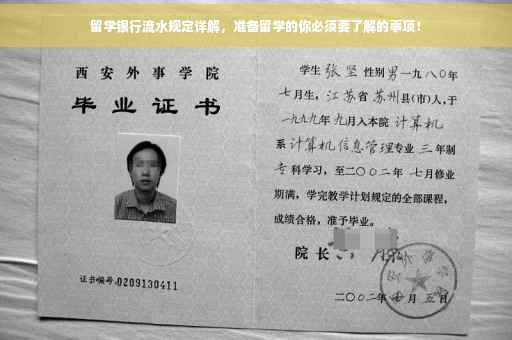 留学银行流水规定详解，准备留学的你必须要了解的事项！
西安外事学院
毕业证书
证书编号:0209130411
学生 张坚 性别 男 一九八〇年
七月生，江苏省 苏州县(市)人，于
一九九九年 九月入本院 计算机
系 计算机信息管理专业 三 年制
专 科学习，至二〇〇二年 七月修业
期满，学完教学计划规定的全部课程，
成绩合格，准予毕业。
院长
二〇〇二年 七 月 五 日